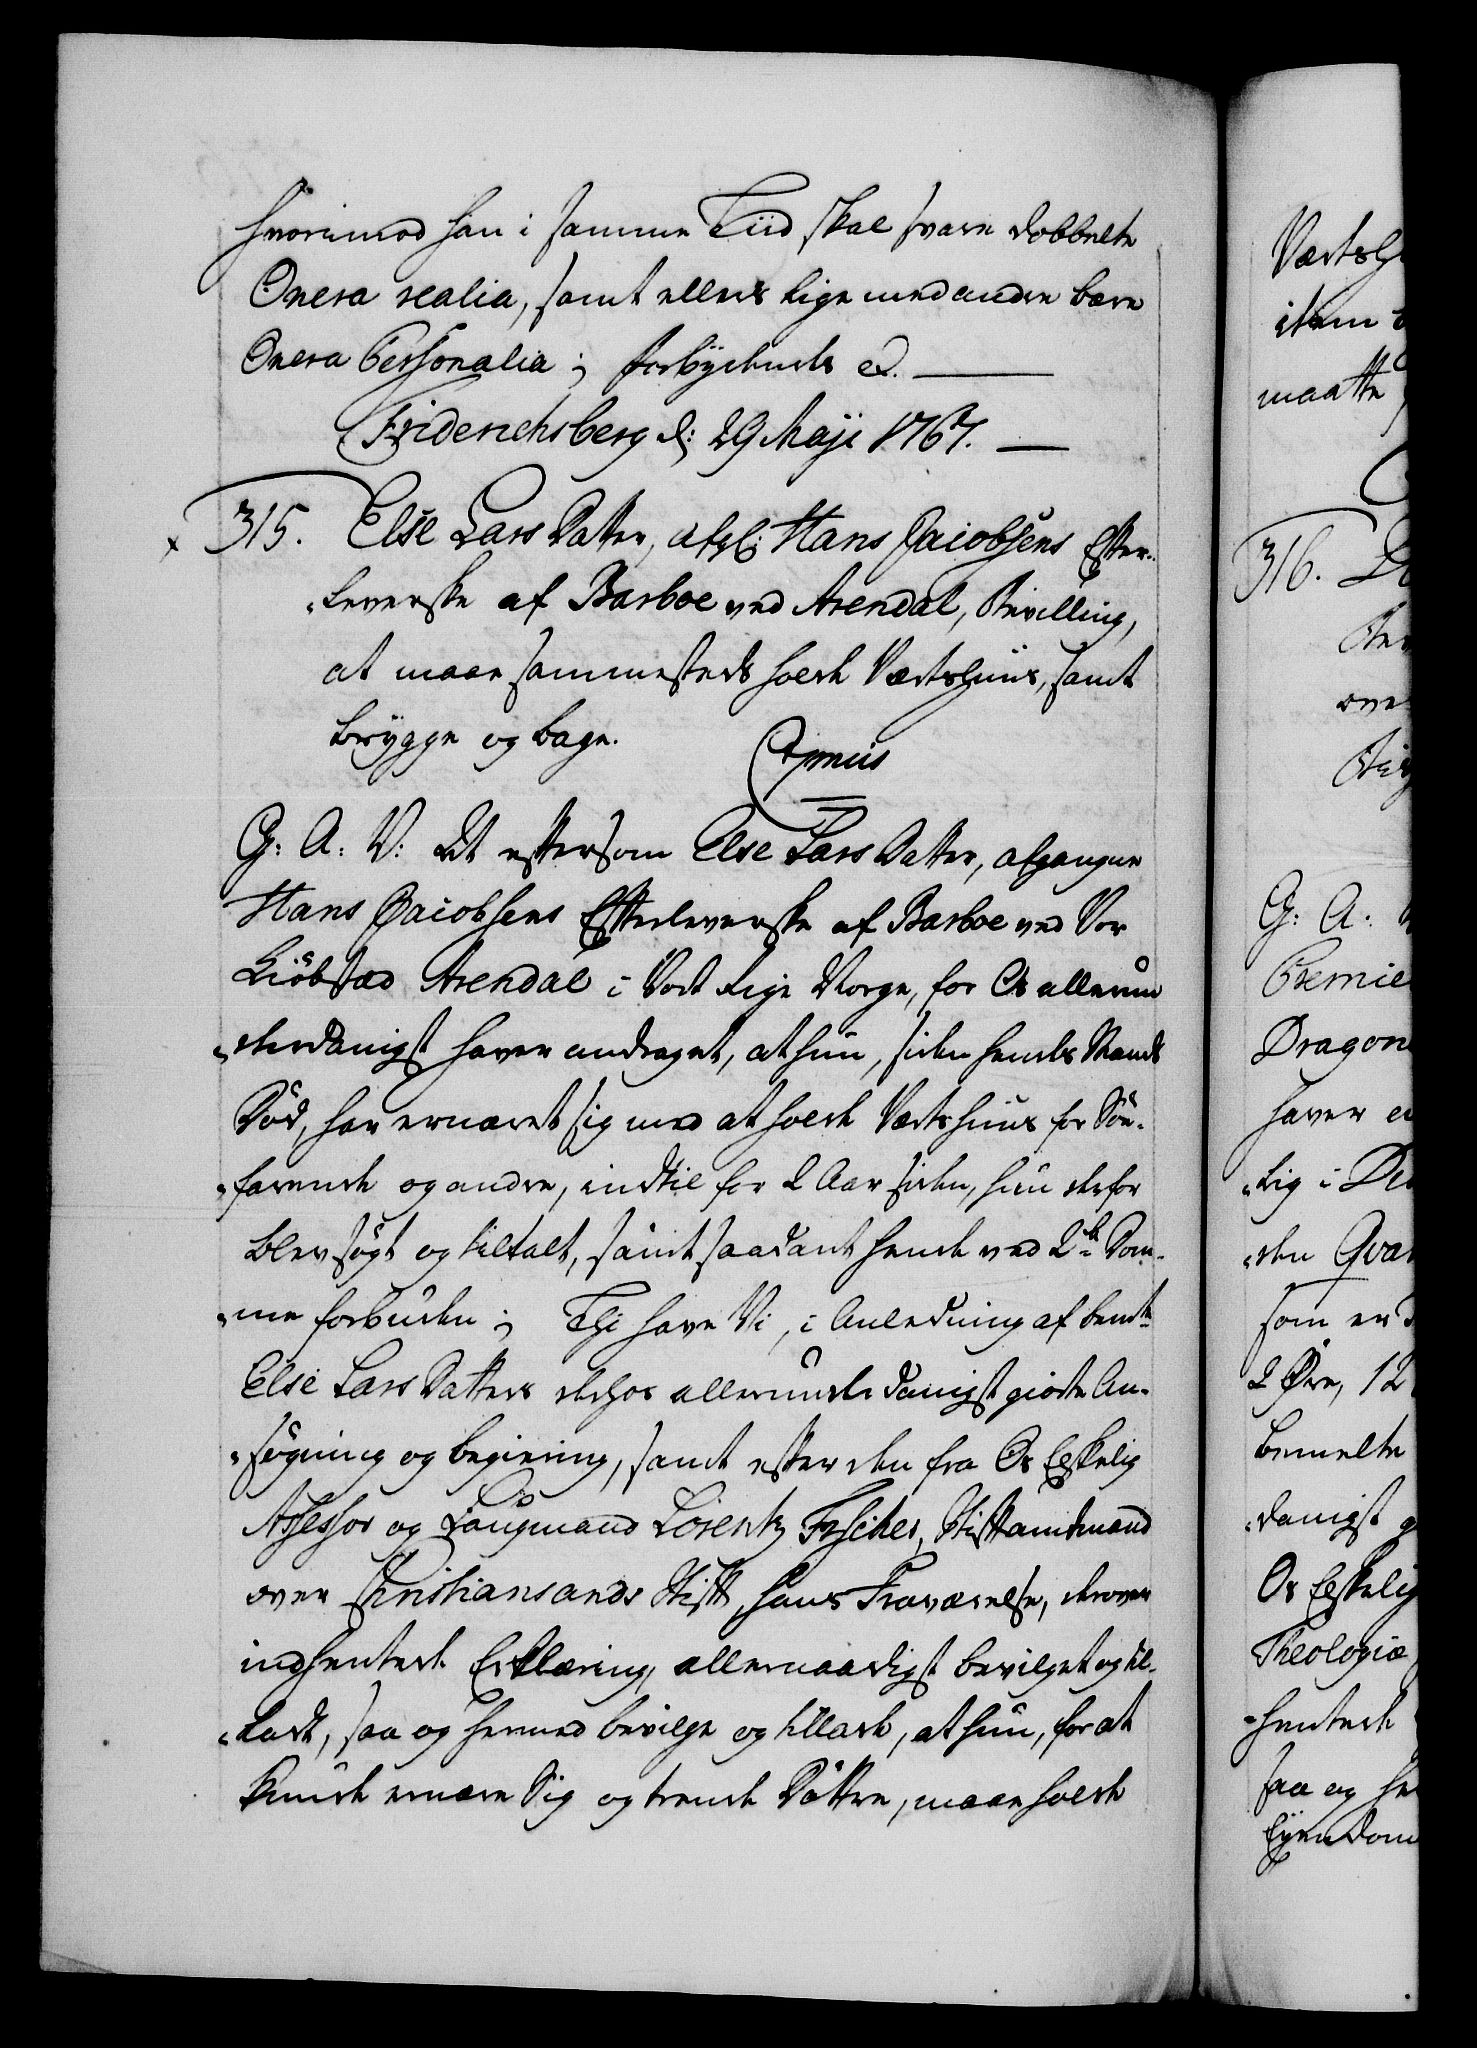 hvorimod han i samme Tiid skal svare dobbelte
Onera realia, samt ellers lige med andre bære
Onera Personalia; forbydendes &.
Friderichsberg d: 29 Maji 1767.
315. Else Lars Datter, afg: Hans Jacobsens Efter-
leverske af Barboe ved Arendal, Bevilling,
at maae sammesteds holde Værtshuus, samt
brygge og bage.
Gratis
G: A: V: At eftersom Else Lars Datter, afgangne
Hans Jacobsens Efterleverske af Barboe ved Vor
Kiöbstæd Arendal i Vort Rige Norge, for Os allerun
derdanigst haver andraget, at hun, siden hendes Mands
Död, har ernæret sig med at holde Værtshuus for Söe-
farende og andre, indtil for 2 Aar siden, hun derfor
blev sögt og tiltalt, samt saadant hende ved 2de Dom-
me forbuden; Thi have Vi, i Anledning af bemte
Else Lars Datters derhos allerunderdanigst giorte An-
søgning og begiering, samt efter den fra Os Elskelig
Assessor og Laugmand Lorentz Fischer, Stiftamtmand
over Christiansands Stift, hans Fraværelse, derover
indhentede Erklæring, allernaadigst bevilget og til-
ladt, saa og hermed bevilge og tillade, at hun, for at
kunde ernære Sig og trende Döttre, maae holde
Værtshu
item
maatte
316.
G: A:
Premie
Dragon
haver
lig i
den Qvar
som er
2 Øre, 12
bemelte
danigst
Os Elskelig
Theologiæ
hentede
saa og he
Eyendom